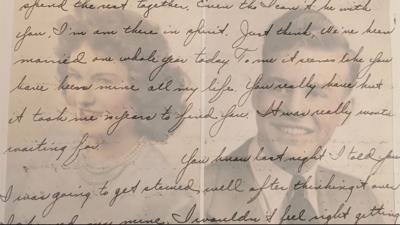 spend the rest together. Even tho I can't be with
you I'm am there in spirit. Just think, We've been
married one whole year today. To me it seems like you
have been mine all my life. You really have but
it took me years to find you. It was really worth
waiting for
You know last night I told you
I was going to get stewed, well after thinking it over
my mind. I wouldn't feel right getting